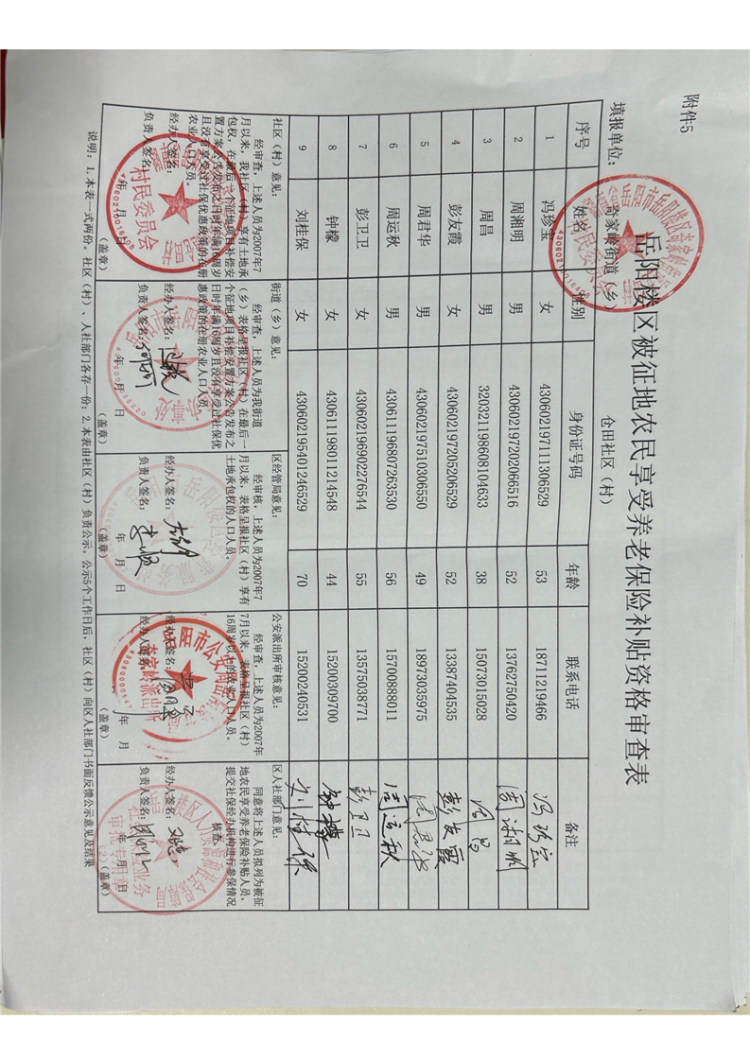 附件5
岳阳楼区被征地农民享受养老保险补贴资格审查表
填报单位: 奇家岭街道(乡) 仓田社区(村)
序号 姓名 性别 身份证号码 年龄 联系电话 备注
1 冯珍宝 女 430602197111306529 53 18711219466 冯珍宝
2 周湘明 男 430602197202066516 52 13762750420 周湘明
3 周昌 男 320321198608104633 38 15073015028 周昌
4 彭友霞 女 430602197205206529 52 13387404535 彭友霞
5 周君华 男 430602197510306550 49 18973035975 周君华
6 周运秋 男 430611196807263530 56 15700888011 周运秋
7 彭卫卫 女 430602196902276544 55 13575038771 彭卫卫
8 钟檬 女 430611198011214548 44 15200309700 钟檬
9 刘桂保 女 430602195401246529 70 15200240531 刘桂保
社区(村)意见:
经审查,上述人员为2007年7
月以来,我社区(村)享有土地承
包权,在最后一个征地项目补偿安
置方案公告发布之日时年满16周岁
且没有享受过社保优惠政策的在册
农业人口人员。
经办人签名:
负责人签名:
年 月 日
(盖章)
街道(乡)意见:
经审查,上述人员为我街道
(乡)表格呈报社区(村)在最后一
个征地项目补偿安置方案公告发布之
日时年满16周岁且没有享受过社保优
惠政策的在册农业人口人员
经办人签名:
负责人签名:
年 月 日
(盖章)
区经管局意见:
经审核,上述人员为2007年7
月以来,表格呈报社区(村)享有
土地承包权的人口人员。
经办人签名:
负责人签名:
年 月 日
(盖章)
公安派出所审核意见:
经审查,上述人员为2007年
7月以来,表格呈报社区(村)
16周岁以上的农业人口人员。
经办人签名:
年 月
(盖章)
区人社部门意见:
同意将上述人员拟列为被征
地农民享受养老保险补贴人员,
提交社保经办机构进行参保情况
核查。
经办人签名:
负责人签名:
年 月 日
(盖章)
说明:1.本表一式两份。社区(村)、人社部门各存一份;2.本表由社区(村)负责公示。公示5个工作日后,社区(村)向区人社部门书面反馈公示意见及结果
村民委员会